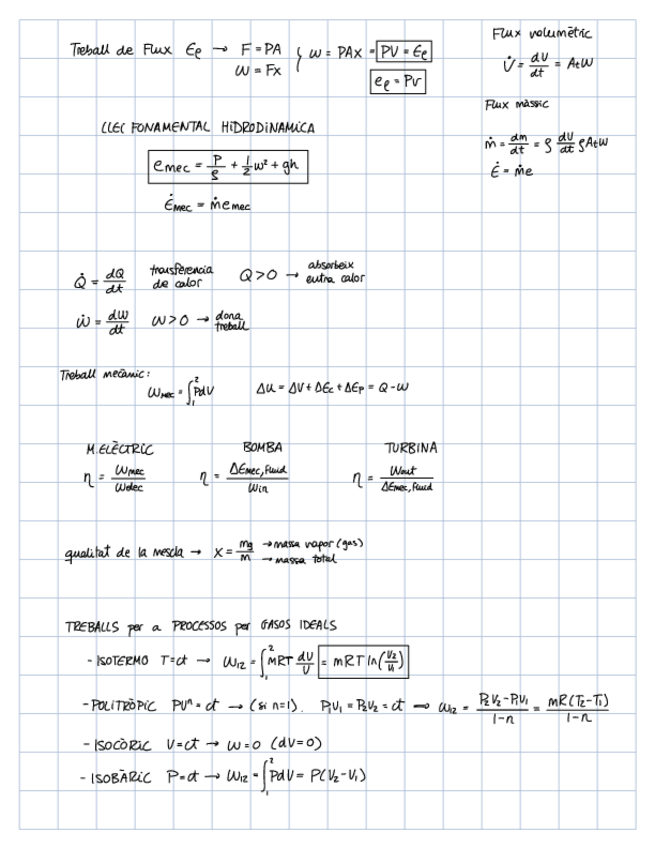 Treball de Flux Eₑ → F = PA } W = PAx = PV = Eₑ
W = Fx
eₑ = Pv
Flux volumètric
V̇ = dV/dt = AtW
Flux màssic
ṁ = dm/dt = ρ dV/dt ρAtW
Ė = ṁe
LLEI FONAMENTAL HIDRODINAMICA
e mec = P/ρ + 1/2 w² + gh
Ė mec = ṁ e mec
Q̇ = dQ/dt transferencia de calor Q>0 → absorbeix entra calor
Ẇ = dW/dt W>0 → dona treball
Treball mecànic:
W mec = ∫₁² PdV ΔU = ΔV + ΔEc + ΔEp = Q - W
M.ELÈCTRIC BOMBA TURBINA
η = Wmec/Welec η = ΔEmec,fluid/Win η = Wout/ΔEmec,fluid
qualitat de la mescla → x = mg/m → massa vapor (gas)
→ massa total
TREBALLS per a PROCESSOS per GASOS IDEALS
- ISOTERMO T=ct → W₁₂ = ∫₁² mRT dV/V = mRT ln(V₂/V₁)
- POLITRÒPIC PVⁿ = ct → (si n=1). P₁V₁ = P₂V₂ = ct → W₁₂ = P₂V₂-P₁V₁/1-n = mR(T₂-T₁)/1-n
- ISOCÒRIC V=ct → W=0 (dV=0)
- ISOBÀRIC P=ct → W₁₂ = ∫₁² PdV = P(V₂-V₁)